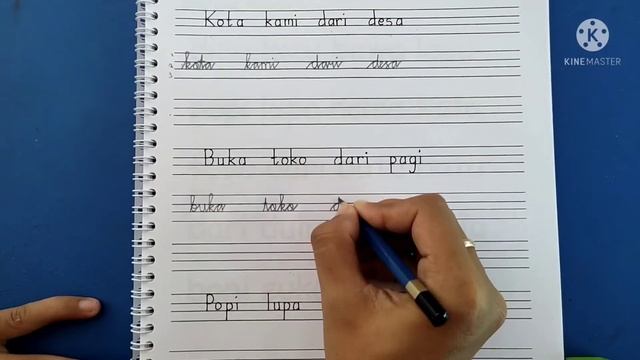 Kota kami dari desa
kota kami darii desa
Buka toko dari pagi
buka toko d
Popi lupa
KINEMASTER